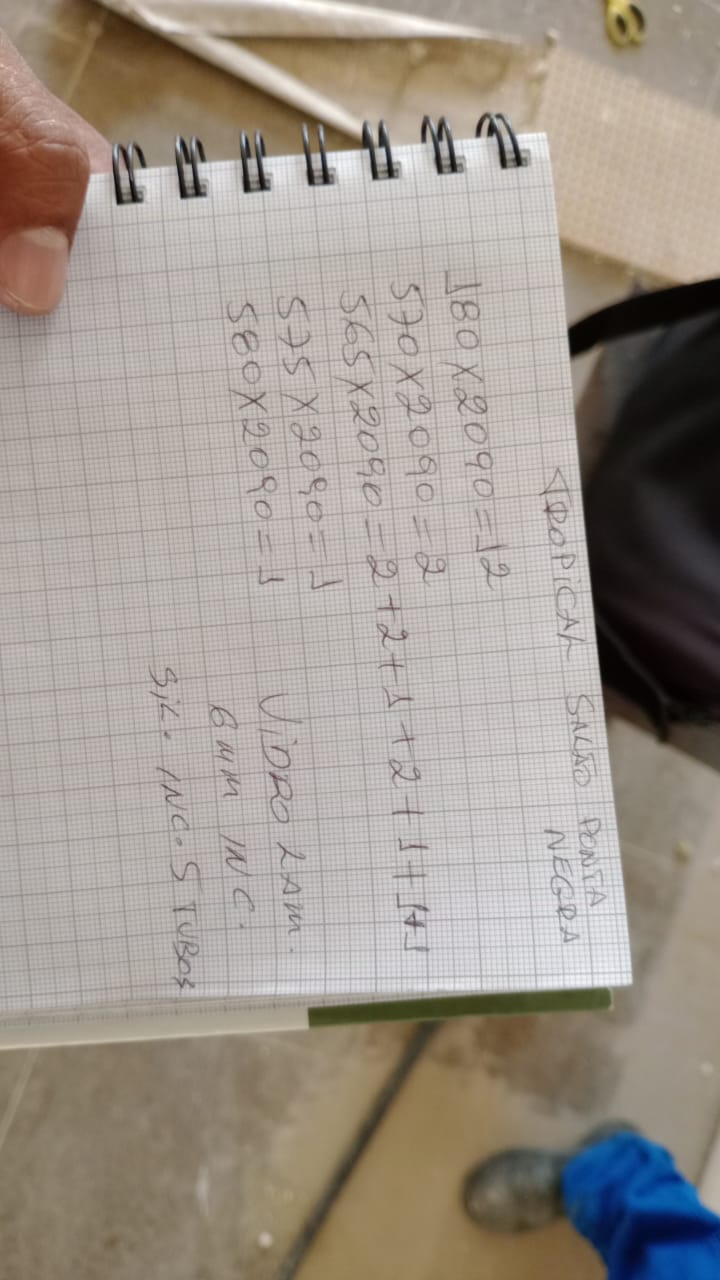 TROPICAL SALÃO PONTA
NEGRA
180 X 2090 = 12
570 X 2090 = 2
565 X 2090 = 2 + 2 + 1 + 2 + 1 + 1 + 1
575 X 2090 = 1
580 X 2090 = 1
VIDRO LAM.
6 MM INC.
SIL. INC. 5 TUBOS